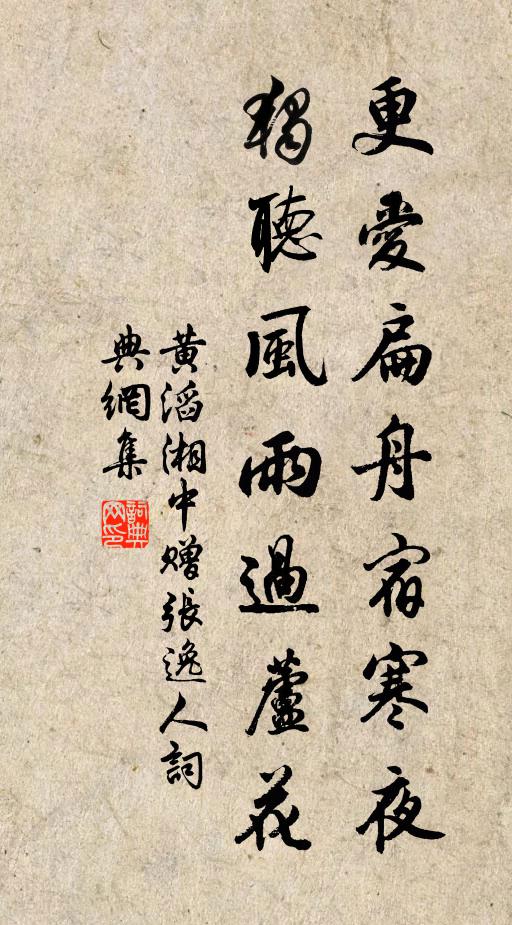 更愛扁舟宿寒夜
獨聽風雨過蘆花
黃滔湘中贈張逸人詞
典網集
詞典網印